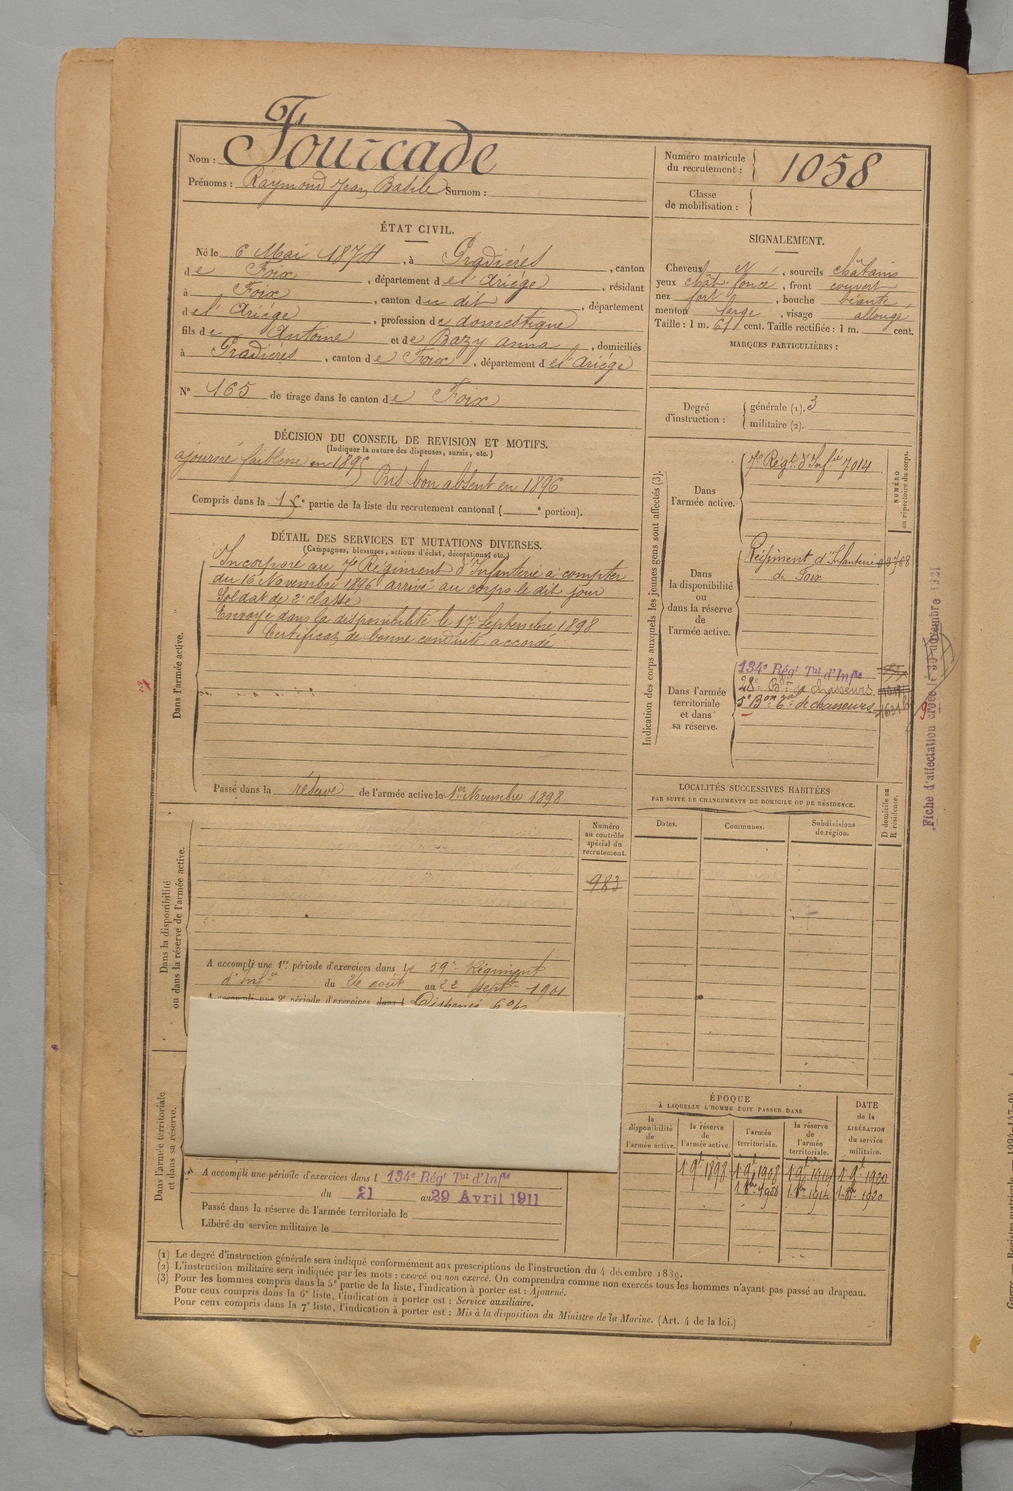 Nom : Fourcade
Prénoms : Raymond Jean Basile Surnom :
Numéro matricule du recrutement : 1058
Classe de mobilisation :
ÉTAT CIVIL.
Né le 6 Mai 1874, à Pradières, canton
de Foix, département de l'Ariége, résidant
à Foix, canton du dit, département
de l'Ariége, profession de domestique
fils de Antoine et de Bazy anna, domiciliés
à Pradières, canton de Foix, département de l'Ariége
N° 165 de tirage dans le canton de Foix
SIGNALEMENT.
Cheveux, sourcils châtains
yeux chât. foncé, front couvert
nez fort, bouche béante,
menton large, visage allongé
Taille : 1 m. 61 cent. Taille rectifiée : 1 m. cent.
MARQUES PARTICULIÈRES :
Degré d'instruction : générale (1). 3
militaire (2).
DÉCISION DU CONSEIL DE REVISION ET MOTIFS.
(Indiquer la nature des dispenses, sursis, etc.)
ajourné faiblesse en 1895
Pris bon absent en 1896
Compris dans la 1e partie de la liste du recrutement cantonal ( e portion).
DÉTAIL DES SERVICES ET MUTATIONS DIVERSES.
(Campagnes, blessures, actions d'éclat, décorations, etc.)
Dans l'armée active.
Incorporé au 7e Régiment d'Infanterie à compter
du 16 Novembre 1896 arrivé au corps le dit jour
Soldat de 2e classe
Envoyé dans la disponibilité le 17 Septembre 1898
Certificat de bonne conduite accordé
Passé dans la réserve de l'armée active le 1er Novembre 1898
Indication des corps auxquels les jeunes gens sont affectés (3).
NUMÉRO au répertoire du corps.
Dans l'armée active.
7e Régt d'Infie 7014
Dans la disponibilité ou dans la réserve de l'armée active.
Régiment d'Infanterie
de Foix
Dans l'armée territoriale et dans sa réserve.
134e Régt Tal d'Infie
28e Bon de Chasseurs
5e Bon de chasseurs
Fiche d'affectation créée le 30 novembre 1921
LOCALITÉS SUCCESSIVES HABITÉES
PAR SUITE DE CHANGEMENTS DE DOMICILE OU DE RÉSIDENCE.
Dates.
Communes.
Subdivisions de région.
D domicile ou R résidence.
Dans la disponibilité ou dans la réserve de l'armée active.
Numéro au contrôle spécial du recrutement.
983
A accompli une 1re période d'exercices dans le 59e Régiment
d'Infie du 26 août au 22 septbre 1901
A accompli une 2e période d'exercices dans l Dispensé
Dans l'armée territoriale et dans sa réserve.
A accompli une période d'exercices dans l 134e Régt Tal d'Infie
du 21 au 29 Avril 1911
Passé dans la réserve de l'armée territoriale le
Libéré du service militaire le
ÉPOQUE
À LAQUELLE L'HOMME DOIT PASSER DANS
la disponibilité de l'armée active.
la réserve de l'armée active.
l'armée territoriale.
la réserve de l'armée territoriale.
DATE de la LIBÉRATION du service militaire.
1 9bre 1898 1 9bre 1908 1 9bre 1914 1 9bre 1920
(1) Le degré d'instruction générale sera indiqué conformément aux prescriptions de l'instruction du 4 décembre 1889.
(2) L'instruction militaire sera indiquée par les mots : exercé ou non exercé. On comprendra comme non exercés tous les hommes n'ayant pas passé au drapeau.
(3) Pour les hommes compris dans la 5e partie de la liste, l'indication à porter est : Ajourné.
Pour ceux compris dans la 6e liste, l'indication à porter est : Service auxiliaire.
Pour ceux compris dans la 7e liste, l'indication à porter est : Mis à la disposition du Ministre de la Marine. (Art. 4 de la loi.)